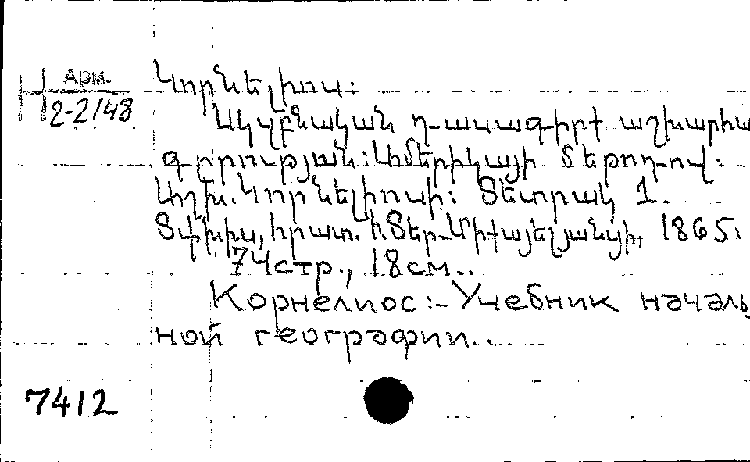 Арм.
2-2148
Կորնելիոս:
Սկզբնական դասագիրք աշխարհա
գրության: Ամերիկայի մեթոդով:
Աշխ. Կորնելիոսի: Տետրակ 1.
Տփխիս, հրատ. Տեր-Միքայելյանցի, 1865:
74 стр., 18 см..
Корнелиос:- Учебник началь
ной географии..
7412